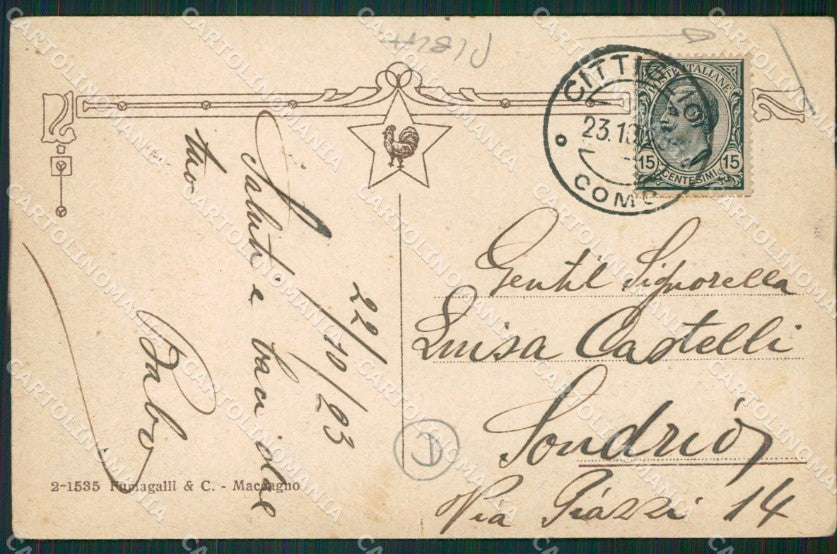 22/10/23
Saluti e baci dal
tuo
Fabio
2-1535 Fumagalli & C. - Maccagno
CITTIGLIO
23.10
COMO
POSTE ITALIANE
15 15
CENTESIMI
Gentil Signorella
Luisa Castelli
Sondrio
Via Piazzi 14
CARTOLINOMANIA